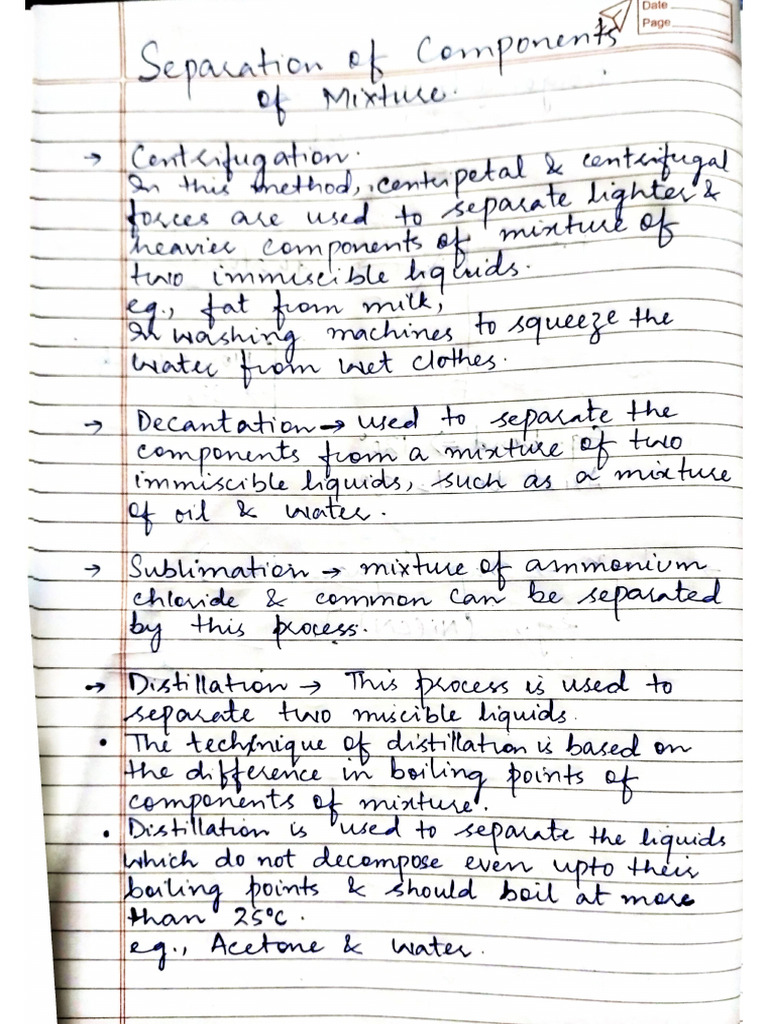 Date
Page
Separation of Components
of Mixture.
→ Centrifugation.
In this method, centripetal & centrifugal
forces are used to separate lighter &
heavier components of mixture of
two immiscible liquids.
eg., fat from milk,
In washing machines to squeeze the
water from wet clothes.
→ Decantation → used to separate the
components from a mixture of two
immiscible liquids, such as a mixture
of oil & water.
→ Sublimation → mixture of ammonium
chloride & common can be separated
by this process.
→ Distillation → This process is used to
separate two miscible liquids.
• The technique of distillation is based on
the difference in boiling points of
components of mixture.
• Distillation is used to separate the liquids
which do not decompose even upto their
boiling points & should boil at more
than 25°C.
eg., Acetone & water.